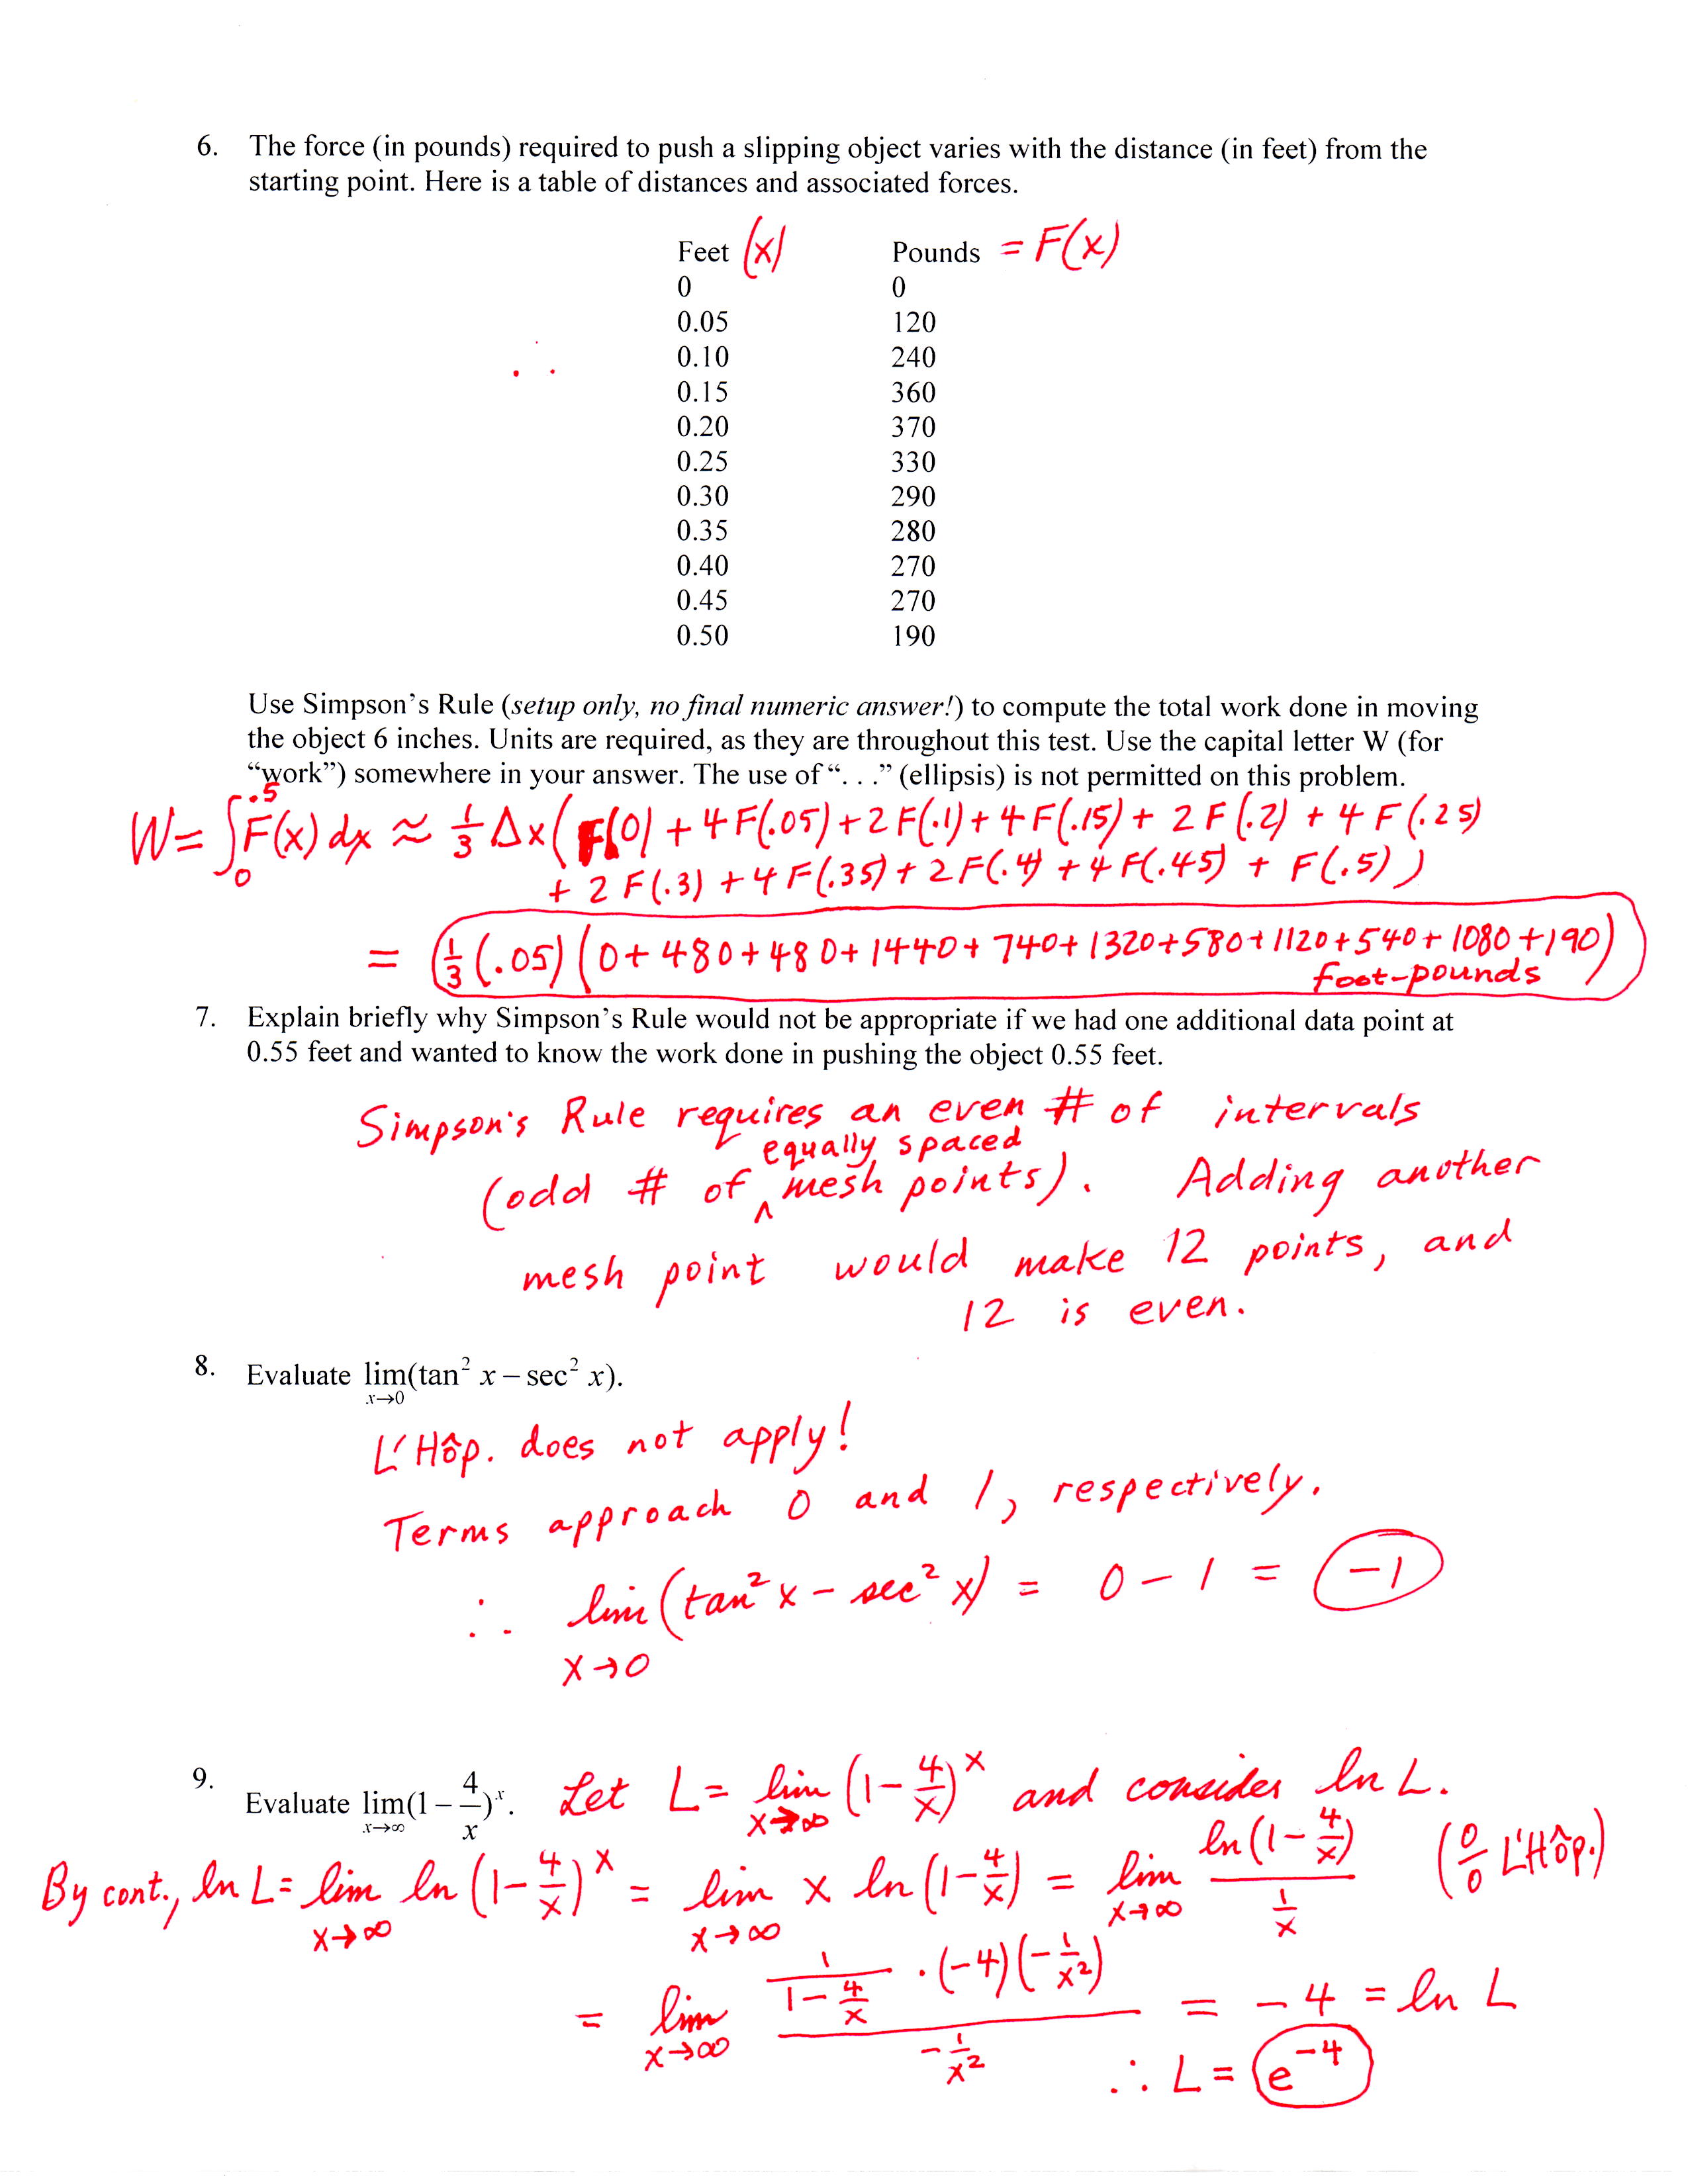 6. The force (in pounds) required to push a slipping object varies with the distance (in feet) from the
starting point. Here is a table of distances and associated forces.
Feet (x) Pounds = F(x)
0 0
0.05 120
0.10 240
0.15 360
0.20 370
0.25 330
0.30 290
0.35 280
0.40 270
0.45 270
0.50 190
Use Simpson's Rule (setup only, no final numeric answer!) to compute the total work done in moving
the object 6 inches. Units are required, as they are throughout this test. Use the capital letter W (for
“work”) somewhere in your answer. The use of “. . .” (ellipsis) is not permitted on this problem.
W = ∫₀^.5 F(x) dx ≈ 1/3 Δx ( F(0) + 4F(.05) + 2F(.1) + 4F(.15) + 2F(.2) + 4F(.25)
+ 2F(.3) + 4F(.35) + 2F(.4) + 4F(.45) + F(.5) )
= 1/3 (.05) ( 0 + 480 + 480 + 1440 + 740 + 1320 + 580 + 1120 + 540 + 1080 + 190 )
foot-pounds
7. Explain briefly why Simpson's Rule would not be appropriate if we had one additional data point at
0.55 feet and wanted to know the work done in pushing the object 0.55 feet.
Simpson's Rule requires an even # of intervals
(odd # of ^ equally spaced mesh points). Adding another
mesh point would make 12 points, and
12 is even.
8. Evaluate lim x→0 (tan² x – sec² x).
L'Hôp. does not apply!
Terms approach 0 and 1, respectively.
∴ lim x→0 (tan² x – sec² x) = 0 – 1 = –1
9. Evaluate lim x→∞ (1 – 4/x)^x. Let L = lim x→∞ (1 – 4/x)^x and consider ln L.
By cont., ln L = lim x→∞ ln (1 – 4/x)^x = lim x→∞ x ln (1 – 4/x) = lim x→∞ ln(1 – 4/x) / (1/x) (0/0 L'Hôp.)
= lim x→∞ (1/(1 – 4/x) · (–4)(–1/x²)) / (–1/x²) = –4 = ln L
∴ L = e^–4